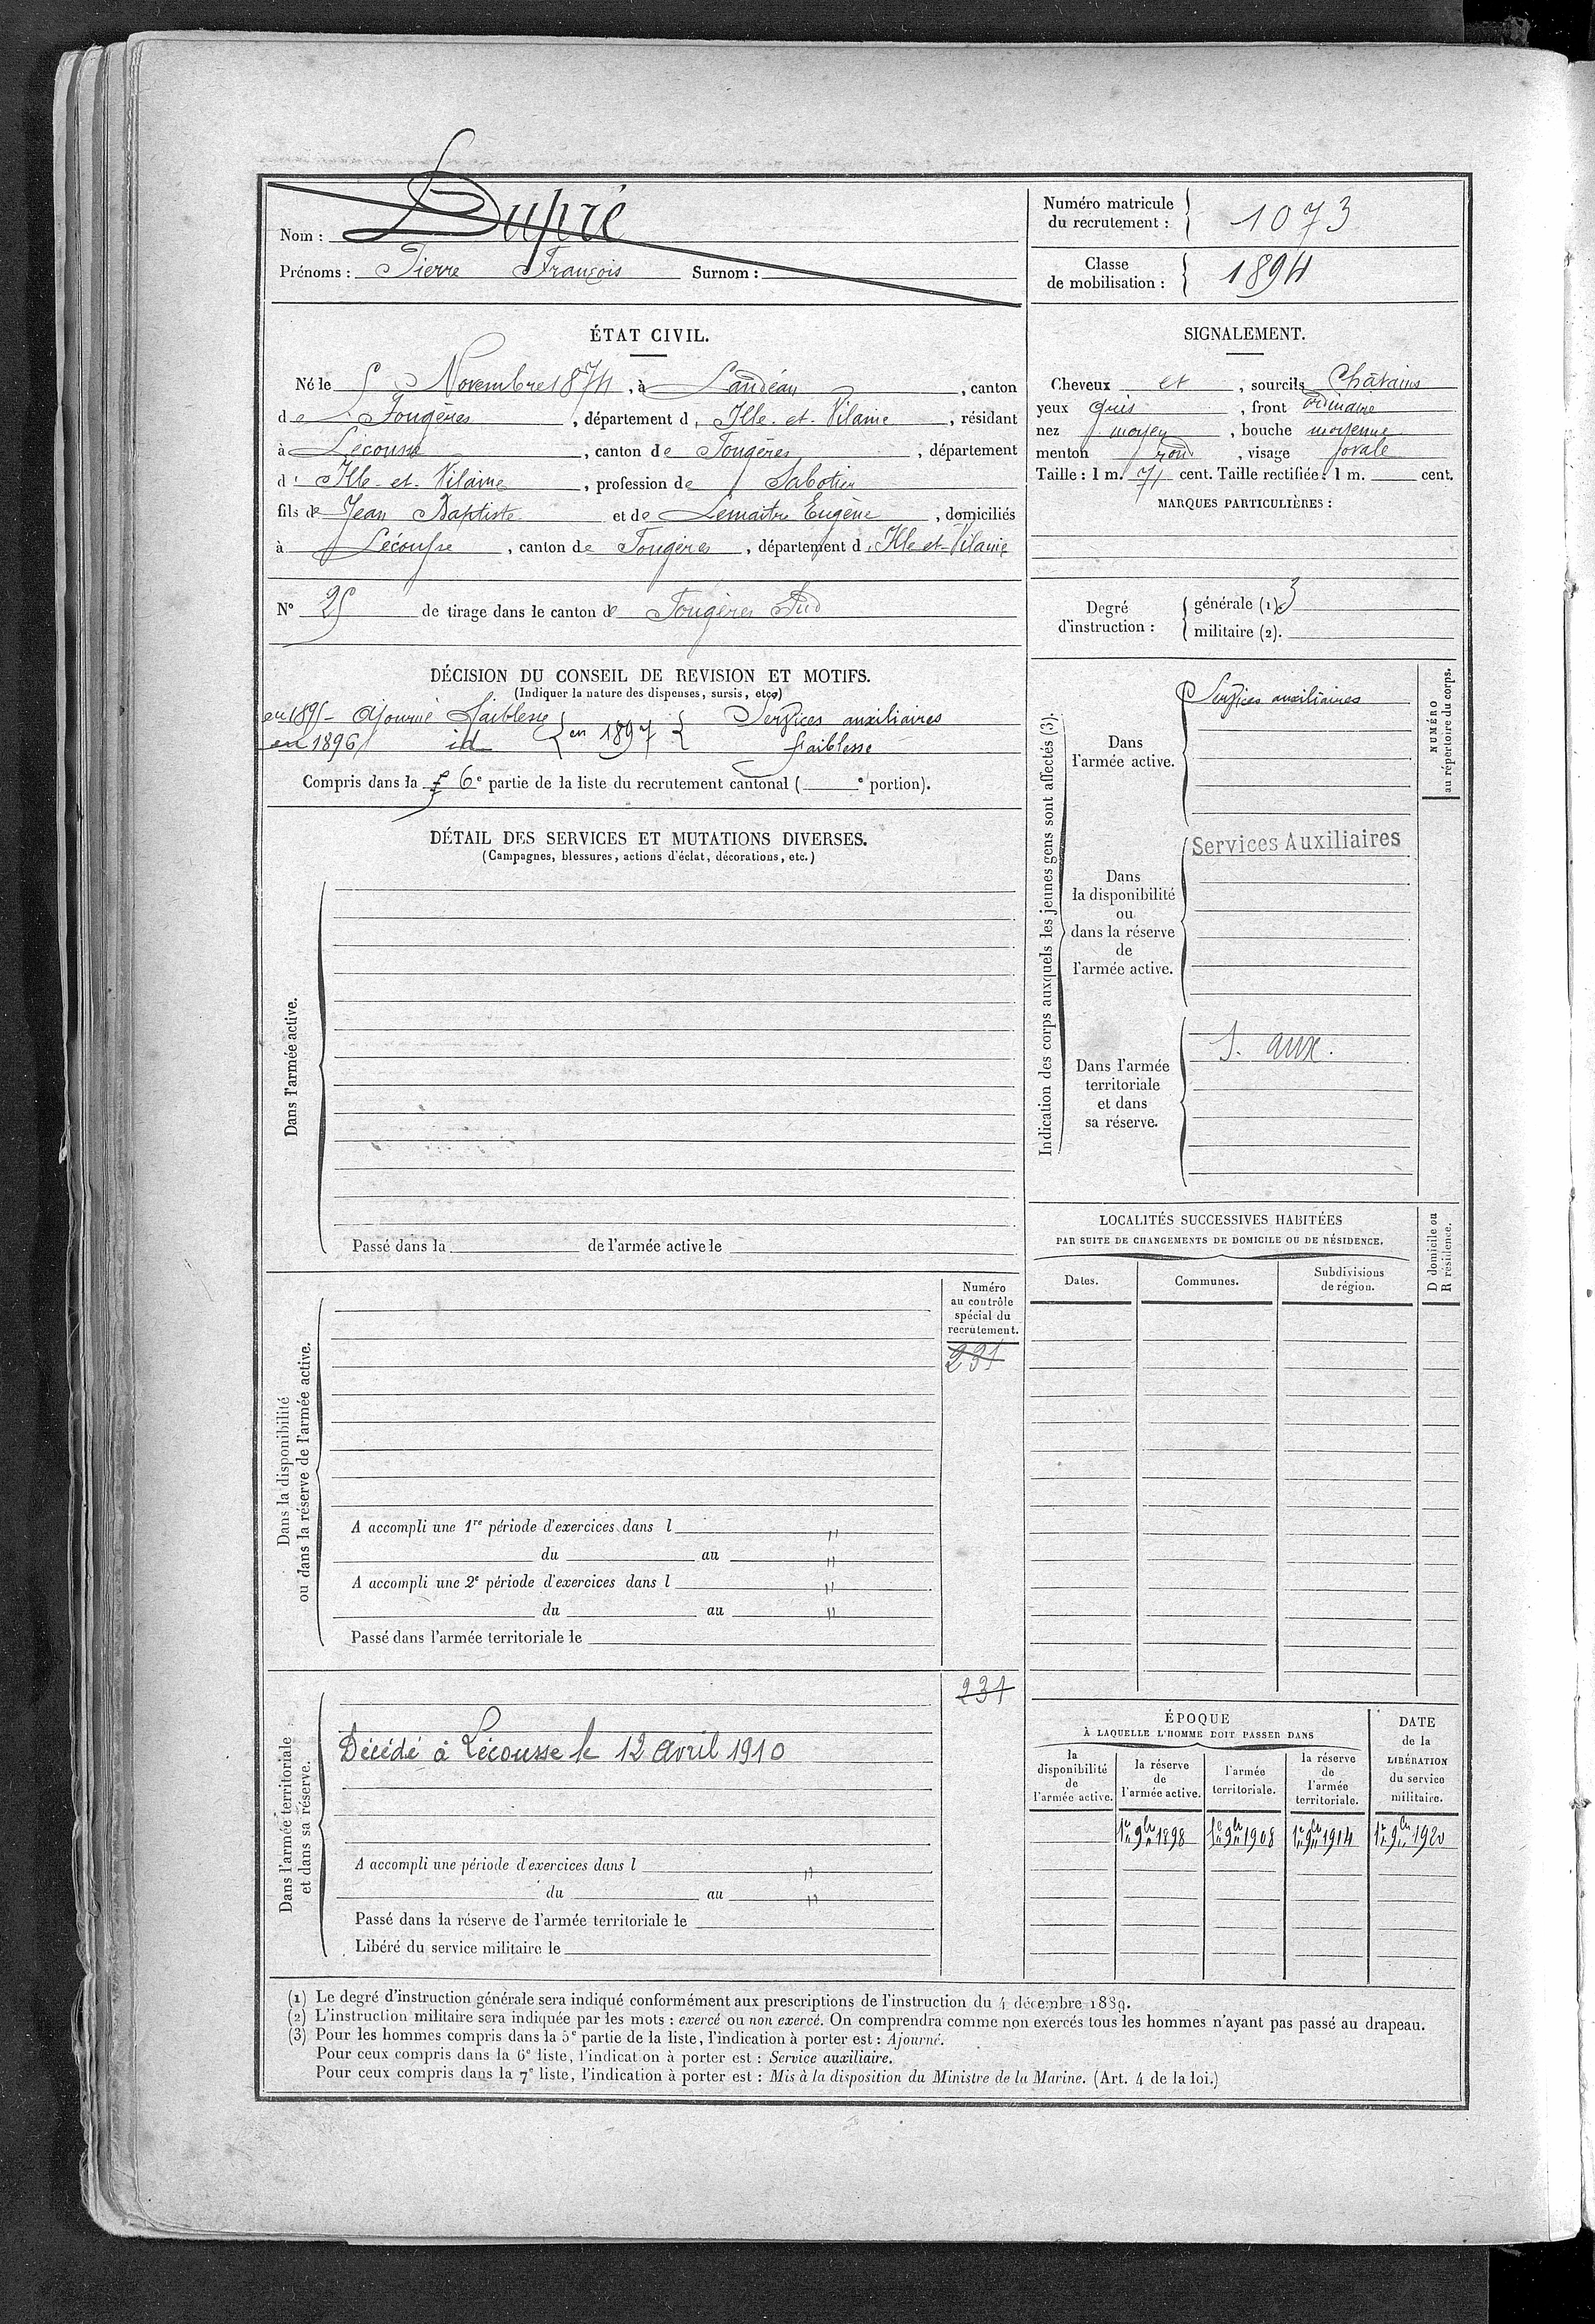 Nom : Dupré
Prénoms : Pierre François Surnom :
Numéro matricule du recrutement : 1073
Classe de mobilisation : 1894
ÉTAT CIVIL.
Né le 5 Novembre 1874, à Landéan, canton
de Fougères, département d'Ille-et-Vilaine, résidant
à Lécousse, canton de Fougères, département
d'Ille-et-Vilaine, profession de Sabotier
fils de Jean Baptiste et de Lemaître Eugène, domiciliés
à Lécousse, canton de Fougères, département d'Ille et-Vilaine
N° 25 de tirage dans le canton de Fougères Sud
SIGNALEMENT.
Cheveux et, sourcils Châtains
yeux Gris, front ordinaire
nez moyen, bouche moyenne
menton rond, visage ovale
Taille : 1 m. 71 cent. Taille rectifiée : 1 m. cent.
MARQUES PARTICULIÈRES :
Degré d'instruction :
générale (1). 3
militaire (2).
DÉCISION DU CONSEIL DE REVISION ET MOTIFS.
(Indiquer la nature des dispenses, sursis, etc.)
en 1895 - Ajourné Faiblesse } en 1897 { Services auxiliaires
en 1896 id faiblesse
Compris dans la 6e partie de la liste du recrutement cantonal ( e portion).
DÉTAIL DES SERVICES ET MUTATIONS DIVERSES.
(Campagnes, blessures, actions d'éclat, décorations, etc.)
Dans l'armée active.
Passé dans la de l'armée active le
Indication des corps auxquels les jeunes gens sont affectés (3).
Dans l'armée active.
Services auxiliaires
Dans la disponibilité ou dans la réserve de l'armée active.
Services Auxiliaires
Dans l'armée territoriale et dans sa réserve.
S. aux.
NUMÉRO au répertoire du corps.
LOCALITÉS SUCCESSIVES HABITÉES
PAR SUITE DE CHANGEMENTS DE DOMICILE OU DE RÉSIDENCE.
Dates. Communes. Subdivisions de région.
D domicile ou R résidence.
Dans la disponibilité
ou dans la réserve de l'armée active.
Numéro
au contrôle
spécial du
recrutement.
231
A accompli une 1re période d'exercices dans l "
du au "
A accompli une 2e période d'exercices dans l "
du au "
Passé dans l'armée territoriale le
Dans l'armée territoriale
et dans sa réserve.
231
Décédé à Lécousse le 12 Avril 1910
A accompli une période d'exercices dans l "
du au "
Passé dans la réserve de l'armée territoriale le
Libéré du service militaire le
ÉPOQUE
À LAQUELLE L'HOMME DOIT PASSER DANS
la disponibilité de l'armée active.
la réserve de l'armée active.
l'armée territoriale.
la réserve de l'armée territoriale.
DATE de la LIBÉRATION du service militaire.
1er 9bre 1898 1er 9bre 1908 1er 9bre 1914 1er 9bre 1920
(1) Le degré d'instruction générale sera indiqué conformément aux prescriptions de l'instruction du 4 décembre 1889.
(2) L'instruction militaire sera indiquée par les mots : exercé ou non exercé. On comprendra comme non exercés tous les hommes n'ayant pas passé au drapeau.
(3) Pour les hommes compris dans la 5e partie de la liste, l'indication à porter est : Ajourné.
Pour ceux compris dans la 6e liste, l'indication à porter est : Service auxiliaire.
Pour ceux compris dans la 7e liste, l'indication à porter est : Mis à la disposition du Ministre de la Marine. (Art. 4 de la loi.)